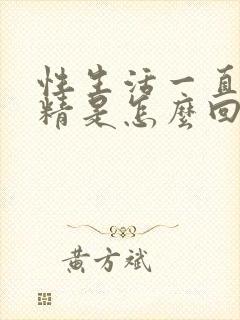 性生活一直
精是怎麼回
黃方斌